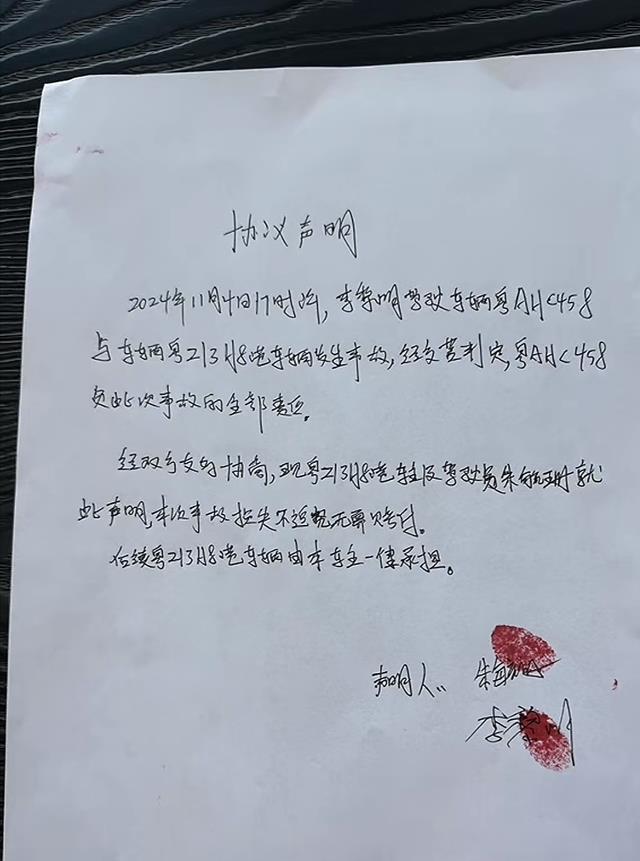 协议声明
2024年11月4日17时许,李黎明驾驶车辆粤AH<458
与车辆粤Z13H8港车辆发生事故,经交警判定,粤AH<458
负此次事故的全部责任。
经双方友好协商,现粤Z13H8港车主及驾驶员朱就
此声明,本次事故损失不追究无需赔付。
后续粤Z13H8港车辆由本车主一律承担。
声明人:朱
李黎明